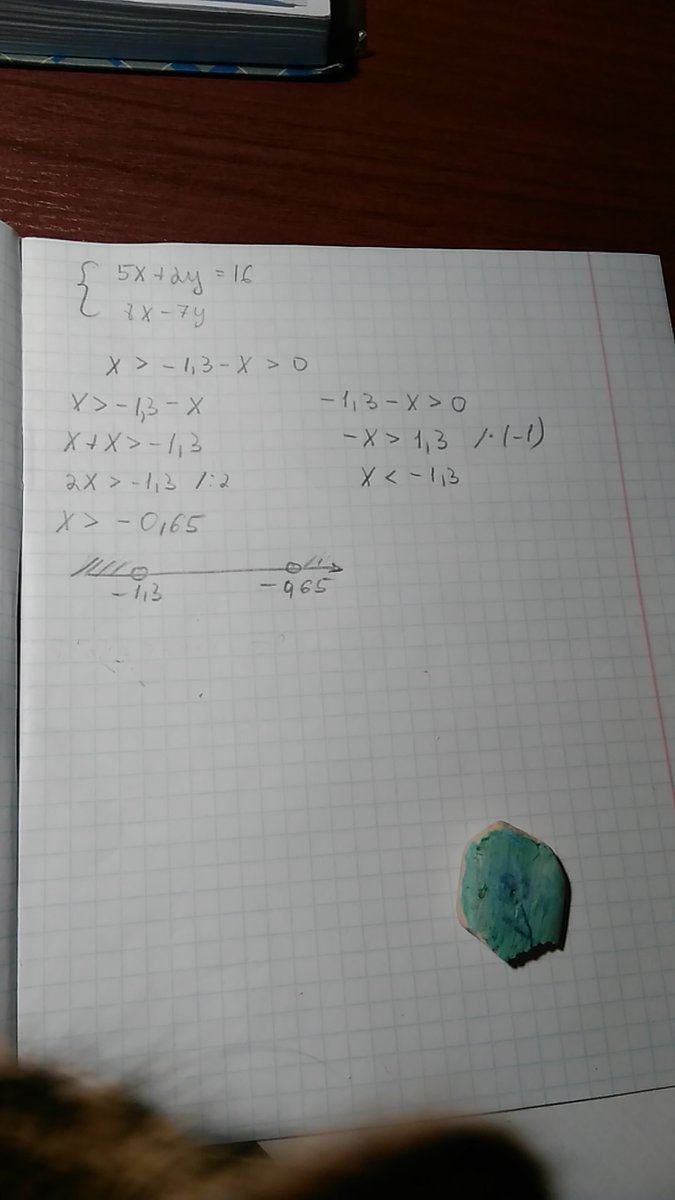 { 5x+2y = 16
8x-7y
x > -1,3 - x > 0
x > -1,3 - x
x + x > -1,3
2x > -1,3 /:2
x > -0,65
-1,3 - x > 0
-x > 1,3 /·(-1)
x < -1,3
-1,3 -0,65